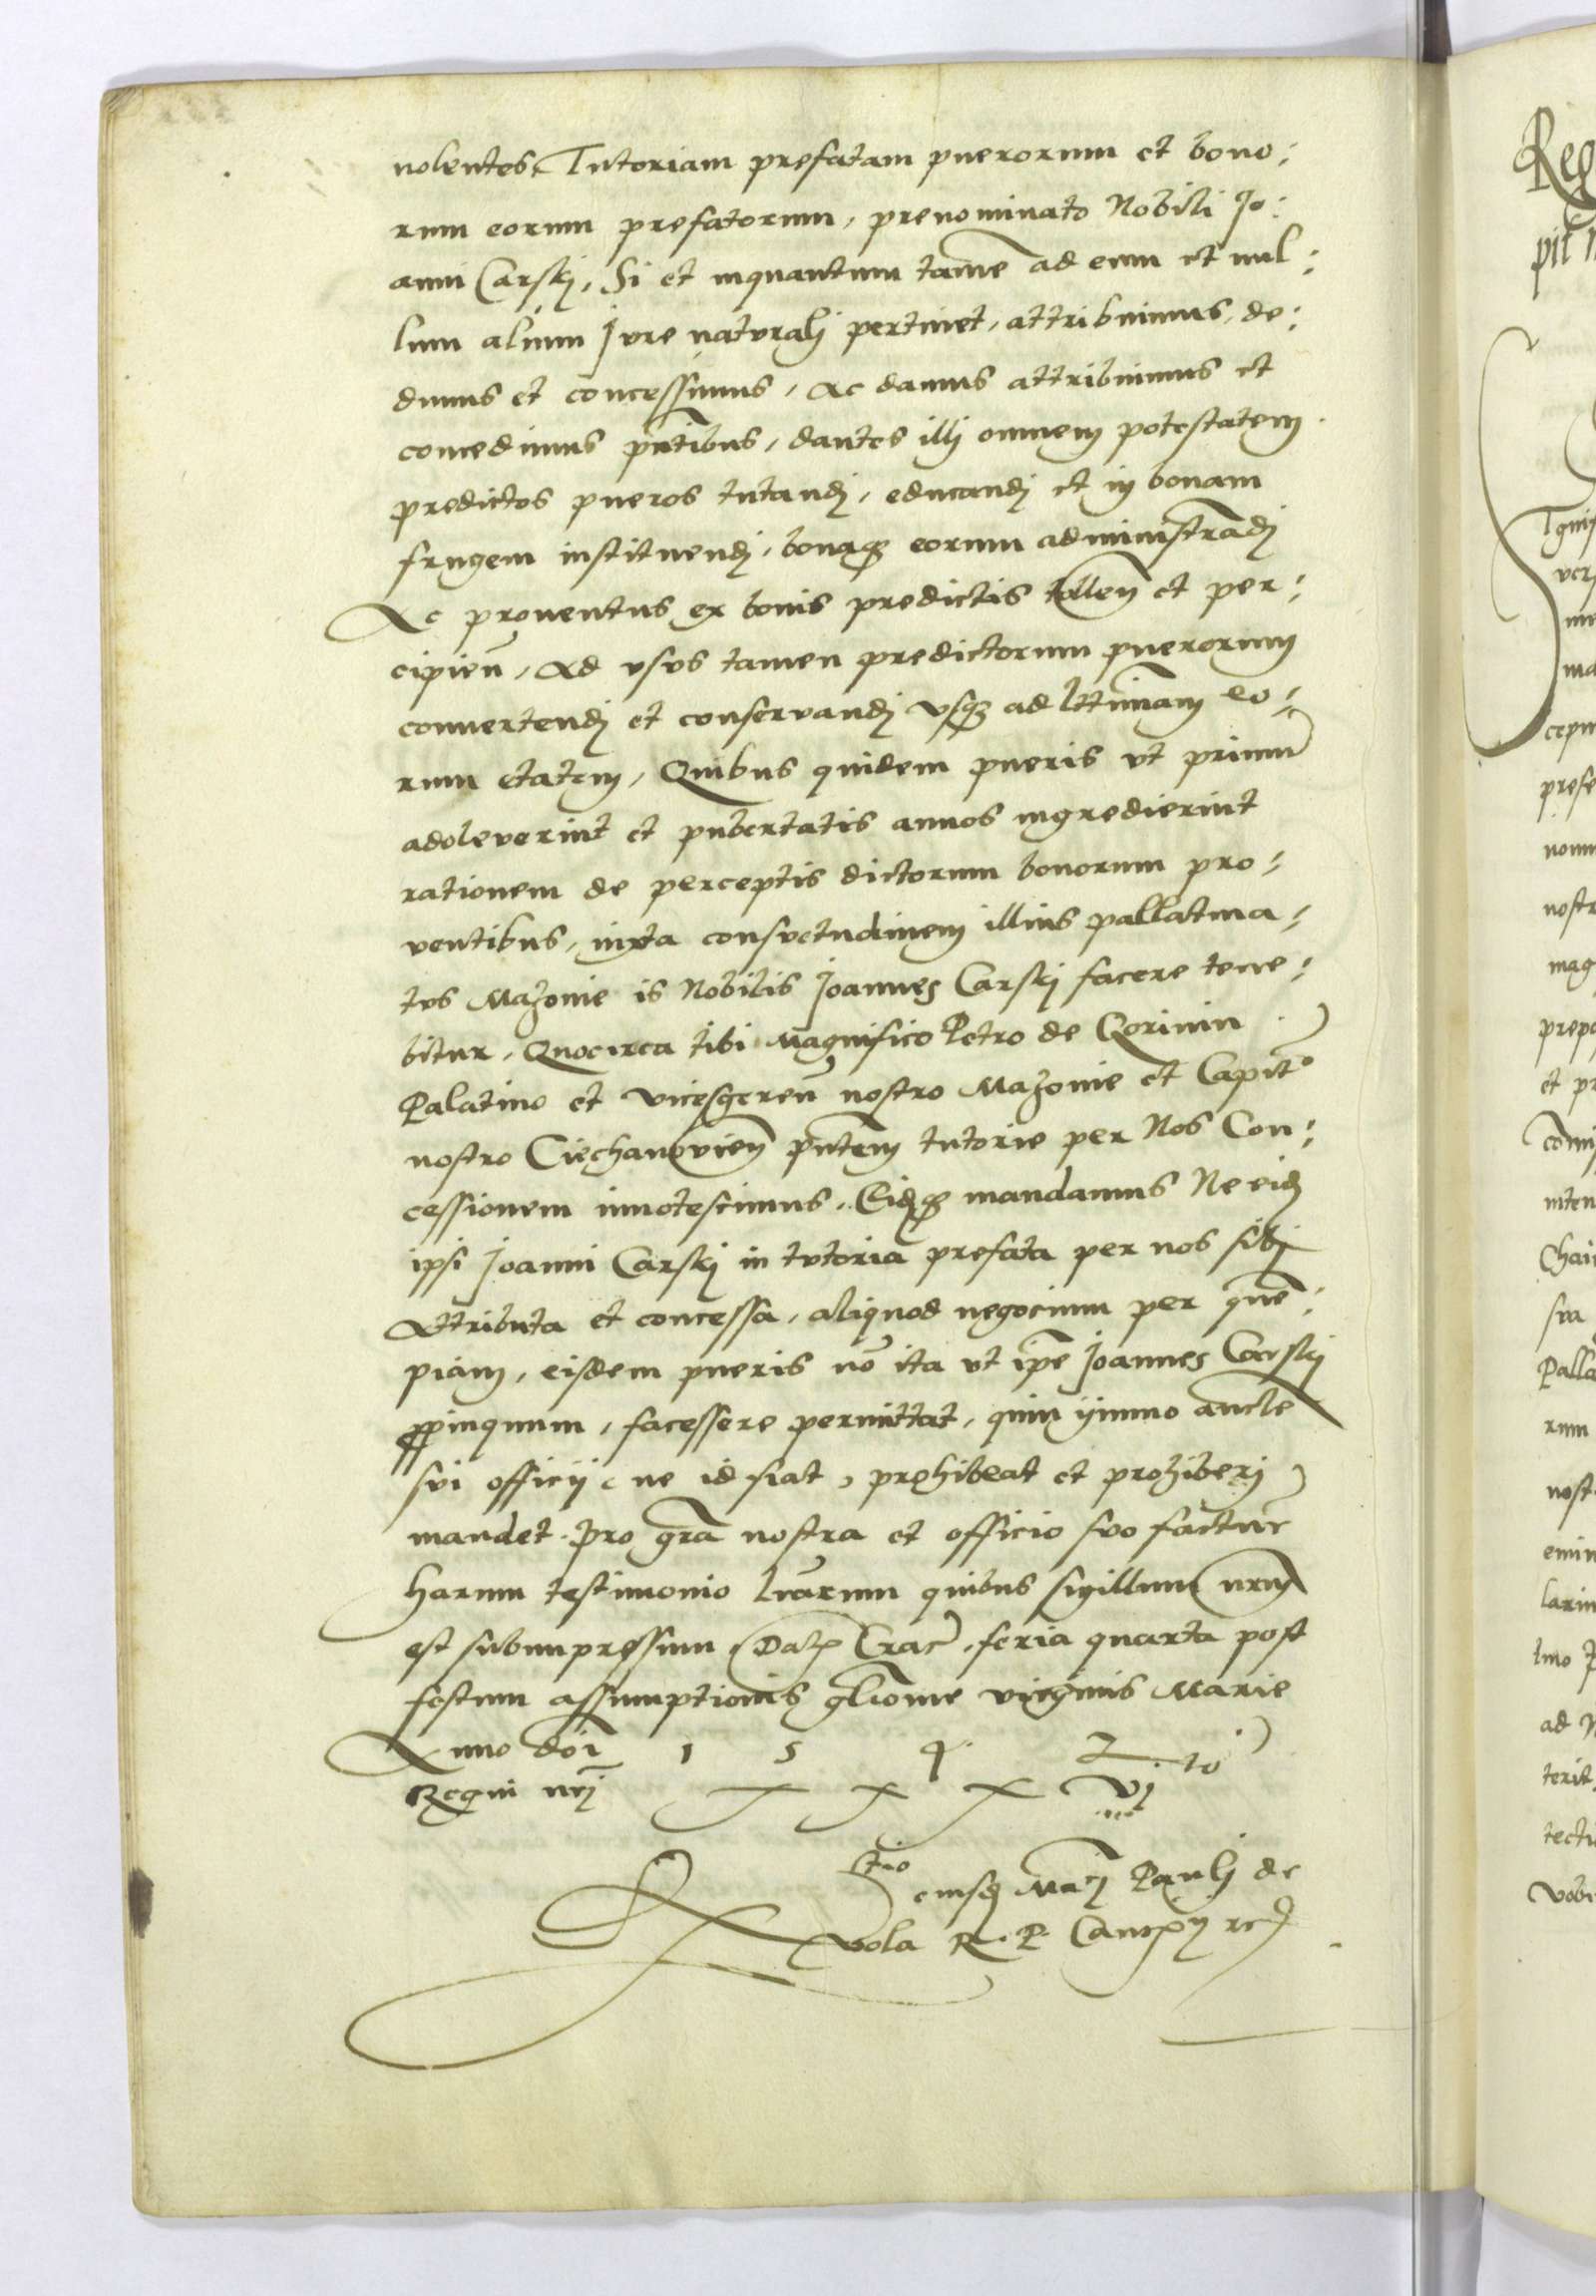 nolentes, Tutoriam prefatam puerorum et bono:
rum eorum prefatorum, prenominato Nobili Jo:
anni Carskj, Si et inquantum tame͂ ad eum et nul:
lum alium Jure naturalj pertinet, attribuimus, de:
dimus et concessimus, Ac damus attribuimus et
concedimus pn͂tibus, dantes illj omnem potestatem
predictos pueros tutandj, educandj et in bonam
frugem instituendj, bonaqꝫ eorum administra͂dj
Ac prouentus ex bonis predictis tollen͂ et per:
cipien͂, Ad usus tamen predictorum puerorum
conuertendj et conseruandj usqꝫ ad l͂ttimam eo:
rum etatem, Quibus quidem pueris ut primum
adoleuerint et pubertatis annos ingredierint
rationem de perceptis dictorum bonorum pro:
uentibus, iuxta consuetudinem illius pallatina:
tus Mazouie is Nobilis Joannes Carskj facere tene:
bitur, Quocirca tibi Magnifico Petro de Gorinin
Palatino et vicesgeren͂ nostro Mazouie et Capit͂o
nostro Ciechanouien͂ pn͂tem tutorie per Nos Con:
cessionem innotescimus, Eidqꝫ mandamus Ne eidem
ipsi Joanni Carskj in tutoria prefata per nos sibj
Attributa et concessa, aliquod negocium per que͂:
piam, eisdem pueris no͂ ita ut ip͂e Joannes Carskj
ꝓpinquum, facessere permittat, quin ymmo
sui officij ne id fiat, prohibeat et prohiberj
mandet. Pro gr͂a nostra et officio suo
Harum testimonio lr͂arum quibus sigillum nr͂m
est subimpressum Dat͂ Crac͂ feria quarta post
festum assumptionis gl͂iose virginis Marie
Anno do͂i 1 5 4 2
Regni nr͂j x x x vj to
R͂tio eiusdem Ma͂ci Paulj de
Vola R. P. Cance͂ij rc͂
Reg
pit